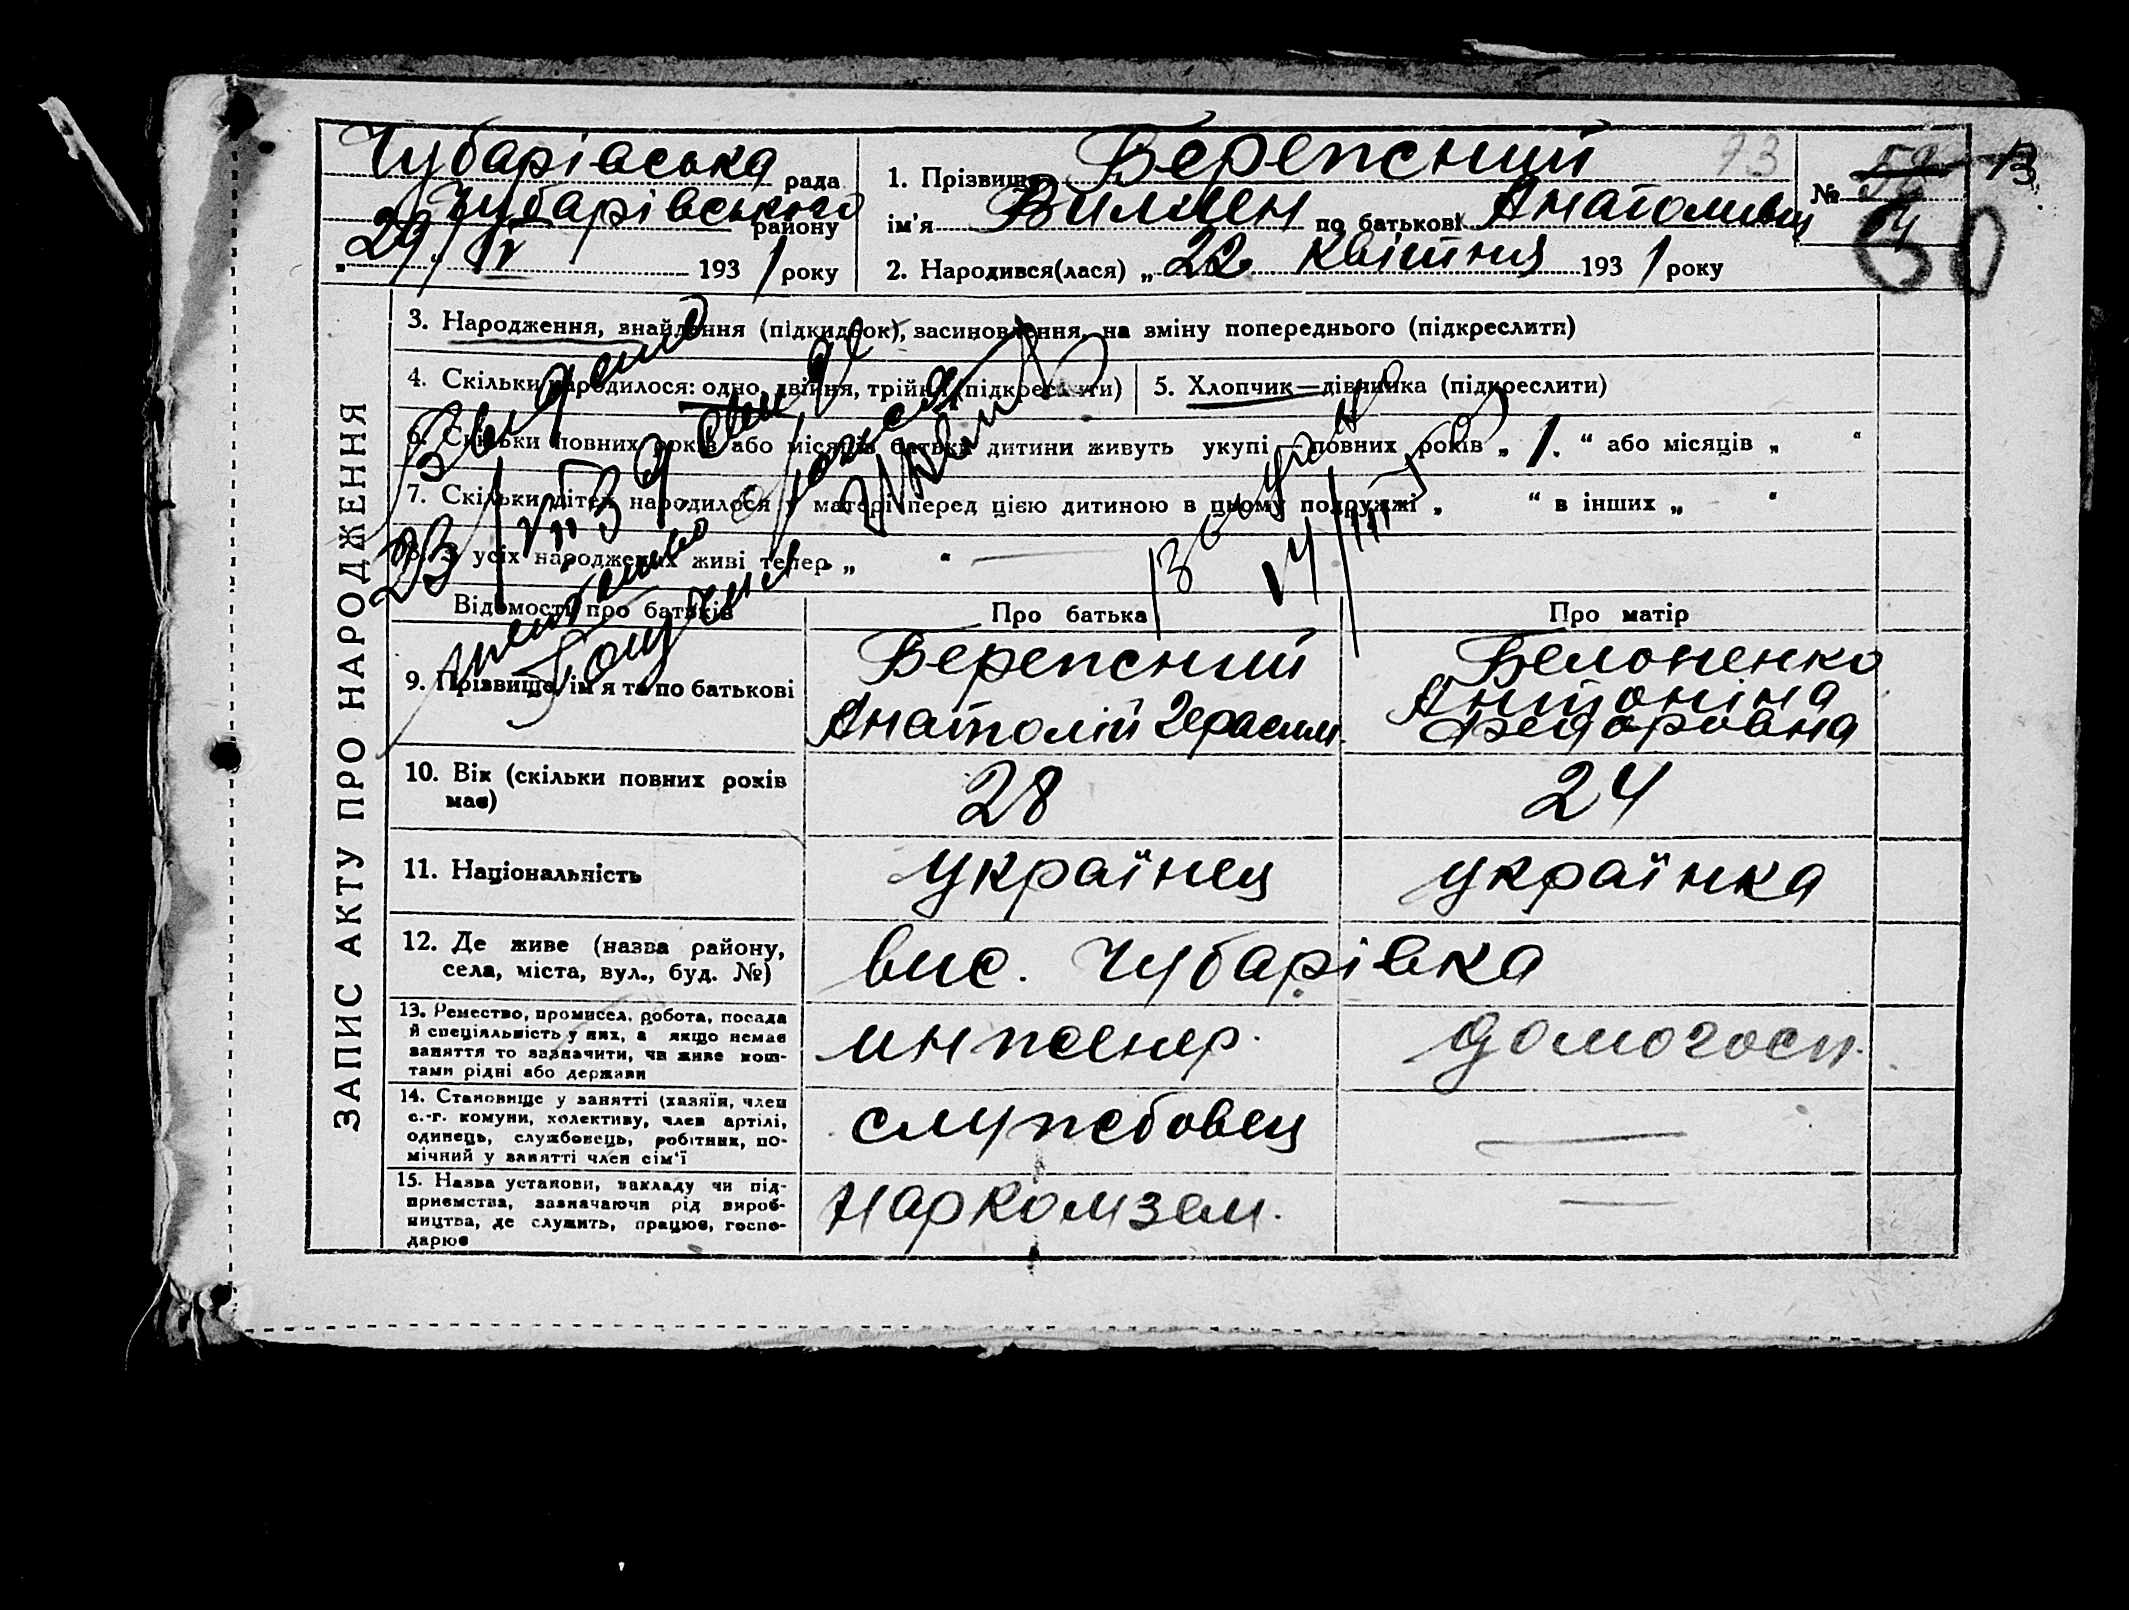 Чубарівська рада
Чубарівського району
„29/IV 1931 року
1. Прізвище Бережний 73
ім'я Вилмен по батькові Анатолиевич
2. Народився(лася) „22 квітня 1931 року
№ 54
13
ЗАПИС АКТУ ПРО НАРОДЖЕННЯ
3. Народження, знайдення (підкидьок), засиновлення, на зміну попереднього (підкреслити)
4. Скільки народилося: одно, двійня, трійня (підкреслити)
5. Хлопчик—дівчинка (підкреслити)
6. Скільки повних років або місяців батьки дитини живуть укупі — повних років „ 1. “ або місяців „ “
7. Скільки дітей народилося у матері перед цією дитиною в цьому подружжі „ “ в інших „ “
8. З усіх народжених живі тепер „ “
Відомості про батьків
Про батька
Про матір
9. Прізвище, ім'я та по батькові
Бережний
Анатолій Герасим.
Белоненко
Антоніна
Федоровна
10. Вік (скільки повних років має)
28
24
11. Національність
українец
українка
12. Де живе (назва району, села, міста, вул., буд. №)
вис. Чубарівка
13. Ремество, промисел, робота, посада й спеціяльність у них, а якщо немає заняття то зазначити, чи живе коштами рідні або держави
инженер.
домогосп.
14. Становище у занятті (хазяїн, член с.-г. комуни, колективу, член артілі, одинець, службовець, робітник, помічний у занятті член сім'ї
служебовец
—
15. Назва установи, закладу чи підприємства, зазначаючи рід виробництва, де служить, працює, господарює
Наркомзем.
—